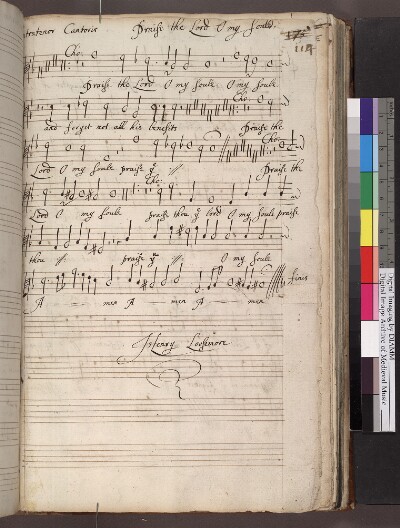 Cantoris Praise the Lord O my Soule.
114
Cho:
Praise the Lord O my Soule O my Soule
Cho:
and forget not all his benefits Praise the
Cho:
Lord O my Soule praise yͤ ://: Praise the
Cho:
Lord O my Soule praise thou yͤ lord O my Soule praise
thou ://: praise yͤ ://: O my Soule
finis
A men A men A men
Henry Loosemore
Digital Imaging by DIAMM
Digital Image Archive of Medieval Music